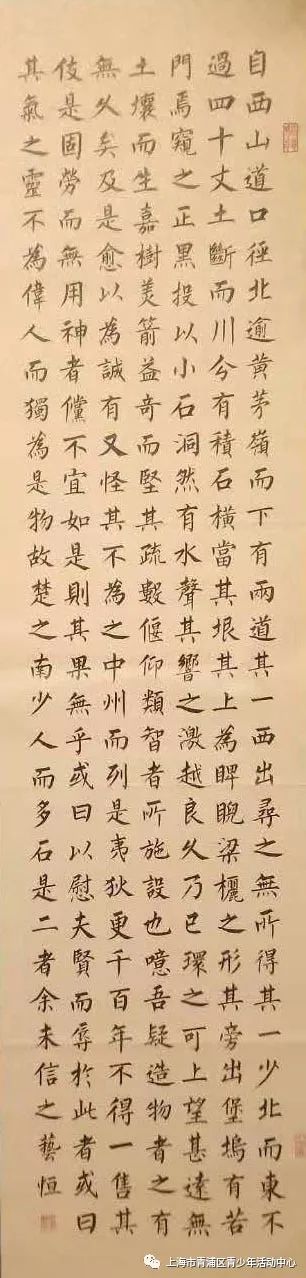 自西山道口徑北逾黃茅嶺而下有兩道其一西出尋之無所得其一少北而東不
過四十丈土斷而川分有積石橫當其垠其上為睥睨梁欐之形其旁出堡塢有若
門焉窺之正黑投以小石洞然有水聲其響之激越良久乃已環之可上望甚遠無
土壤而生嘉樹美箭益奇而堅其疏數偃仰類智者所施設也噫吾疑造物者之有
無久矣及是愈以為誠有又怪其不為之中州而列是夷狄更千百年不得一售其
伎是固勞而無用神者儻不宜如是則其果無乎或曰以慰夫賢而辱於此者或曰
其氣之靈不為偉人而獨為是物故楚之南少人而多石是二者余未信之藝恒
上海市青浦区青少年活动中心